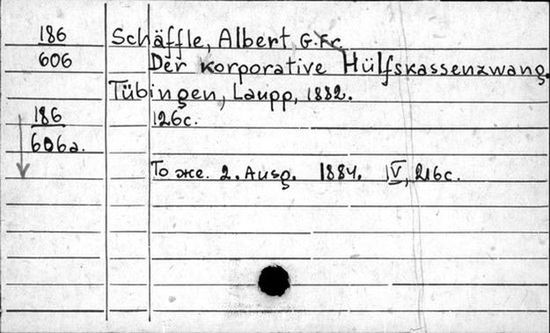 186 Schäffle, Albert G. Fr.
606 Der korporative Hülfskassenzwang.
Tübingen, Laupp, 1882.
186 126c.
606a.
То же. 2. Ausg. 1884. IV, 216c.